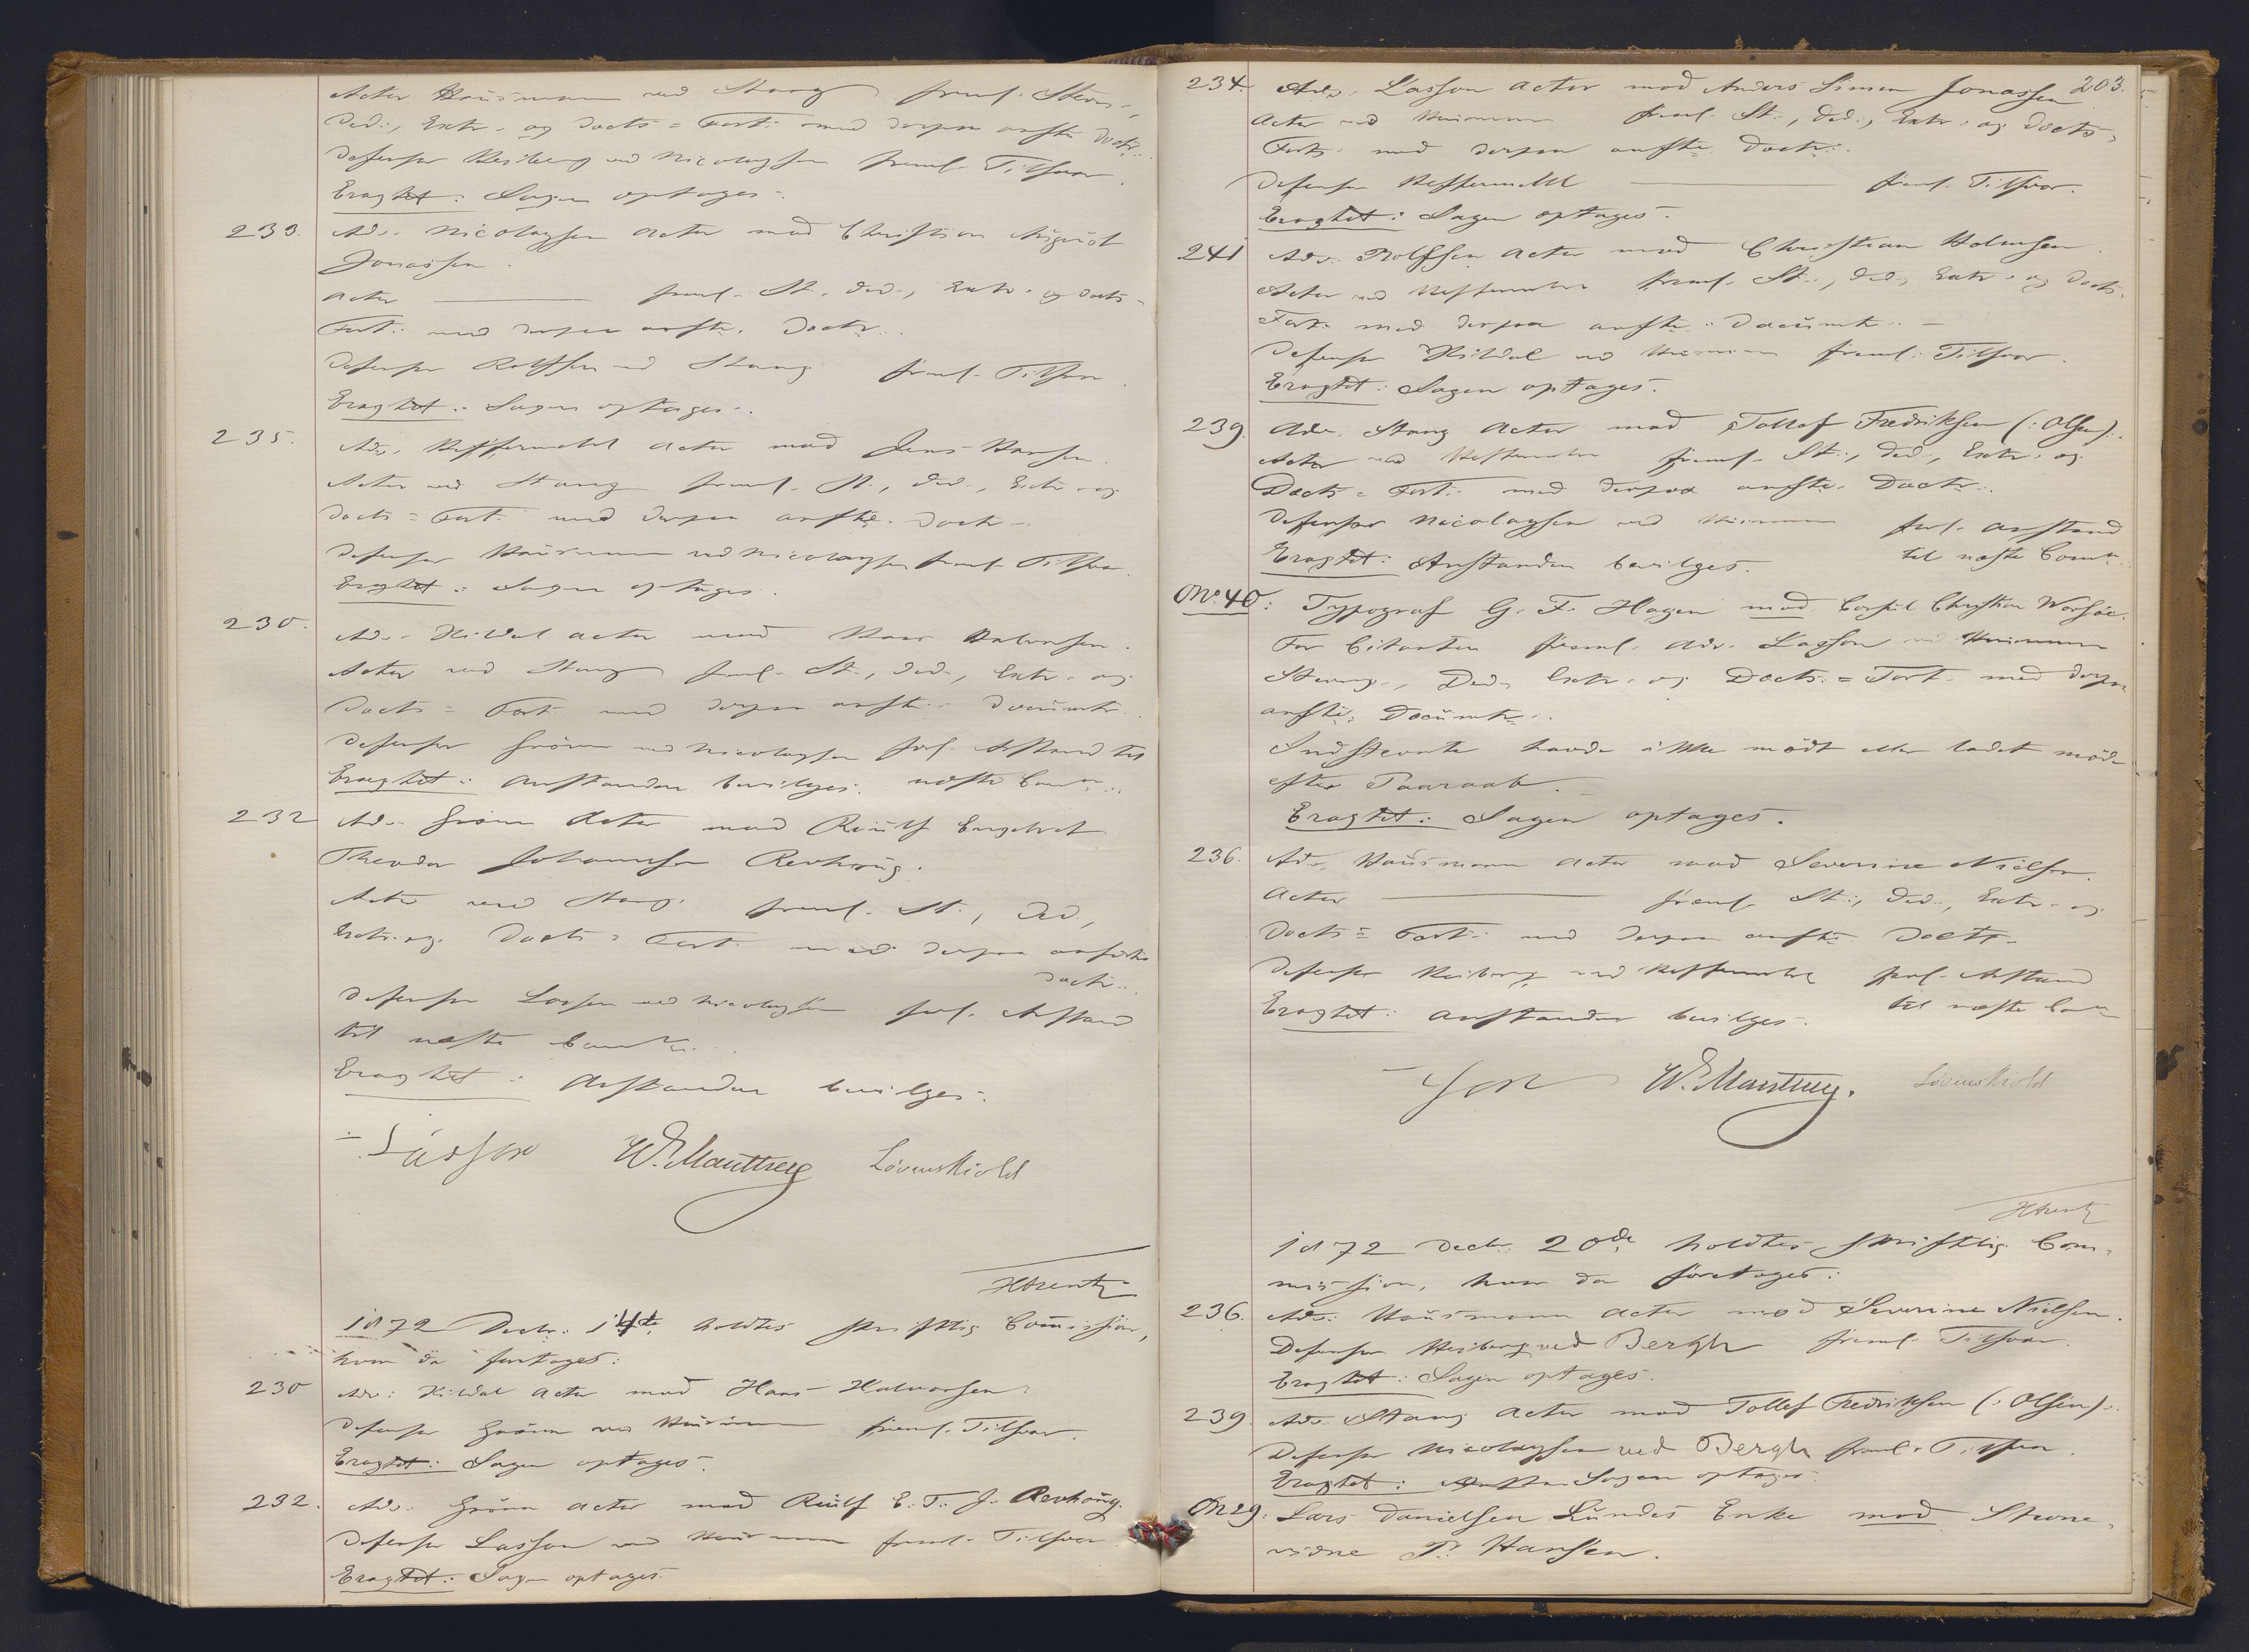 Actor Hausmann ved Stang freml. Stevn.,
Ded:, Extr. og Docts = Fort. med derpaa anfte Doctr.
Defensor Heiberg ved Nicolaysen freml. Tilsvar.
Eragtet: Sagen optages.
233. Adv. Nicolaysen Actor mod Christian August
Jonassen.
Actor freml. St., Ded., Extr. og Docts =
Fort. med derpaa anfte. Doctr.
Defensor Rolfsen ved Stang freml. Tilsvar.
Eragtet: Sagen optages.
235. Adv. Keffermehl Actor mod Jens Hansen.
Actor ved Stang freml. St., Ded., Extr. og
Docts = Fort. med derpaa anfte. Doctr.
Defensor Hausmann ved Nicolaysen freml. Tilsvar.
Eragtet: Sagen optages.
230. Adv. Kildal Actor mod Hans Halvorsen.
Actor ved Stang freml. St., Ded., Extr. og
Docts = Fort. med derpaa anfte. Documtr.
Defensor Grönn ved Nicolaysen forl. Anstand til
Eragtet: Anstanden bevilges. næste Comn.
232 Adv. Grönn Actor mod Rüülf Engelret
Theodor Johannesen Revhaug.
Actor ved Stang freml. St., Ded.,
Extr. og Docts = Fort. med derpaa anförte
Doctr.
Defensor Lasson ved Nicolaysen forl. Anstand
til næste Comn.
Eragtet: Anstanden bevilges.
Lasson W. E. Manthey Løvenskiold
HArentz
1872 Decbr. 14de holdtes skriftlig Commission,
hvor da foretoges:
230 Adv: Kildal Actor mod Hans Halvorsen.
Defensor Grönn ved Hausmann freml. Tilsvar.
Eragtet: Sagen optages.
232. Adv. Grönn Actor mod Rüülf E. T. J. Revhaug.
Defensor Lasson ved Hausmann freml. Tilsvar
Eragtet: Sagen optages.
203.
234. Adv. Lasson Actor mod Anders Simen Jonassen
Actor ved Hausmann freml. St., Ded:, Extr. og Docts =
Fort. med derpaa anfte Doctr.
Defensor Keffermehl freml. Tilsvar.
Eragtet: Sagen optages.
241 Adv. Rolfsen Actor mod Christian Holmsen.
Actor ved Keffermehl freml. St., Ded., Extr. og Docts =
Fort. med derpaa anfte. Documtr.
Defensor Kildal ved Hausmann freml. Tilsvar.
Eragtet: Sagen optages.
239. Adv. Stang Actor mod Tollef Fredriksen (: Olsen).
Actor ved Keffermehl freml. St., Ded., Extr. og
Docts = Fort. med derpaa anfte. Doctr.
Defensor Nicolaysen ved Hausmann forl. Anstand
Eragtet: Anstanden bevilges. til næste Comn.
No 40: Typograf G. F. Hagen mod Christian Worsöe.
For Citanten freml. Adv. Lasson ved Hausmann
Stevng., Ded. Extr. og Docts. = Fort. med derpaa
anfte. Documtr.
Indstevnte havde ikke mödt eller ladet möde
efter Paaraab.
Eragtet: Sagen optages.
236. Adv. Hausmann Actor mod Severine Nielsen.
Actor freml. St., Ded., Extr. og
Docts = Fort. med derpaa anfte Doctr.
Defensor Heiberg ved Keffermehl forl. Anstand
Eragtet: Anstanden bevilges. til næste Comn
W. E. Manthey. Løvenskiold
HArentz
1872 Decbr. 20de holdtes skriftlig Com-
mission, hvor da foretoges:
236. Adv. Hausmann Actor mod Severine Nielsen.
Defensor Heiberg ved Bergh freml. Tilsvar.
Eragtet: Sagen optages.
239. Adv. Stang Actor mod Tollef Fredriksen (: Olsen).
Defensor Nicolaysen ved Bergh freml. Tilsvar.
Eragtet: Sagen optages.
No 29: Lars Danielsen Lundes Enke mod Stevne-
vidne P. Hansen.